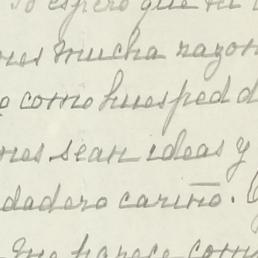 Yo espero que tu
nes mucha razon
o como huesped d
nes sean ideas y
dadero cariño.
me parece com